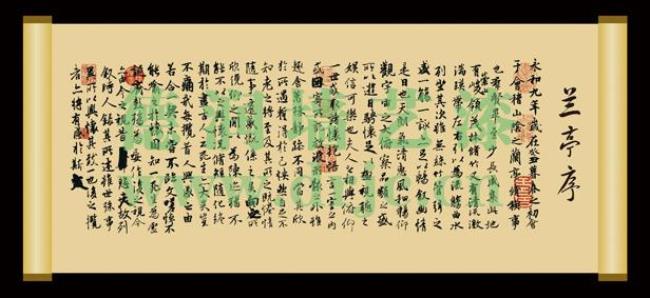 兰亭序
永和九年歲在癸丑暮春之初會
于會稽山陰之蘭亭脩稧事
也羣賢畢至少長咸集此地
有崇山峻領茂林脩竹又有清流激
湍暎帶左右引以為流觴曲水
列坐其次雖無絲竹管弦之
盛一觴一詠亦足以暢叙幽情
是日也天朗氣清惠風和暢仰
觀宇宙之大俯察品類之盛
所以遊目騁懷足以極視聽之
娛信可樂也夫人之相與俯仰
一世或取諸懷抱悟言一室之內
或因寄所託放浪形骸之外雖
趣舍萬殊靜躁不同當其欣
於所遇暫得於己怏然自足不
知老之將至及其所之既惓情
隨事遷感慨係之矣向之所
欣俛仰之閒以為陳迹猶不
能不以之興懷況脩短隨化終
期於盡古人云死生亦大矣豈
不痛哉每攬昔人興感之由
若合一契未嘗不臨文嗟悼不
能喻之於懷固知一死生為虛
誕齊彭殤為妄作後之視今
亦由今之視昔悲夫故列
叙時人錄其所述雖世殊事
異所以興懷其致一也後之攬
者亦將有感於斯文